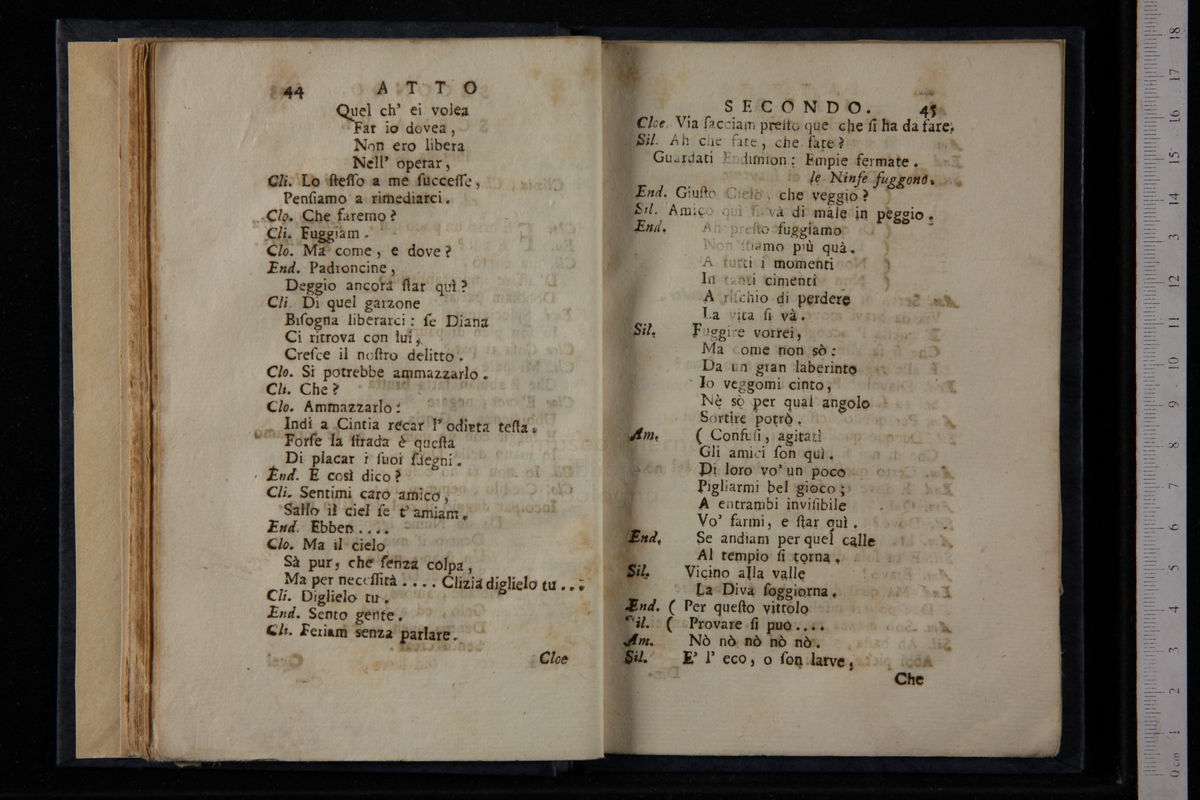 44 ATTO
Quel ch' ei volea
Far io dovea,
Non ero libera
Nell' operar,
Cli. Lo ſteſſo a me ſucceſſe,
Penſiamo a rimediarci.
Clo. Che faremo?
Cli. Fuggiam.
Clo. Ma come, e dove?
End. Padroncine,
Deggio ancora ſtar quì?
Cli. Di quel garzone
Biſogna liberarci: ſe Diana
Ci ritrova con lui,
Creſce il noſtro delitto.
Clo. Si potrebbe ammazzarlo.
Cli. Che?
Clo. Ammazzarlo:
Indi a Cintia recar l' odieta teſta.
Forſe la ſtrada è queſta
Di placar i ſuoi ſdegni.
End. E così dico?
Cli. Sentimi caro amico,
Sallo il ciel ſe t' amiam.
End. Ebben....
Clo. Ma il cielo
Sà pur, che ſenza colpa,
Ma per neceſſità.... Clizia diglielo tu...
Cli. Diglielo tu.
End. Sento gente.
Cli. Feriam senza parlare.
Cloe
SECONDO. 45
Cloe. Via facciam preſto que che ſi ha da fare.
Sil. Ah che fate, che fate?
Guardati Endimion: Empie fermate.
le Ninfe fuggono.
End. Giuſto Cielo, che veggio?
Sil. Amico quì ſi và di male in peggio.
End. Ah preſto fuggiamo
Non ſtiamo più quà.
A tutti i momenti
In tanti cimenti
A riſchio di perdere
La vita ſi và.
Sil. Fuggire vorrei,
Ma come non sò:
Da un gran laberinto
Io veggomi cinto,
Nè sò per qual angolo
Sortire potrò.
Am. ( Confuſi, agitati
Gli amici ſon quì.
Di loro vo' un poco
Pigliarmi bel gioco;
A entrambi inviſibile
Vo' farmi, e ſtar quì.
End. Se andiam per quel calle
Al tempio ſi torna.
Sil. Vicino alla valle
La Diva ſoggiorna.
End. ( Per queſto vittolo
Sil. ( Provare ſi può....
Am. Nò nò nò nò nò.
Sil. E' l' eco, o ſon larve,
Che